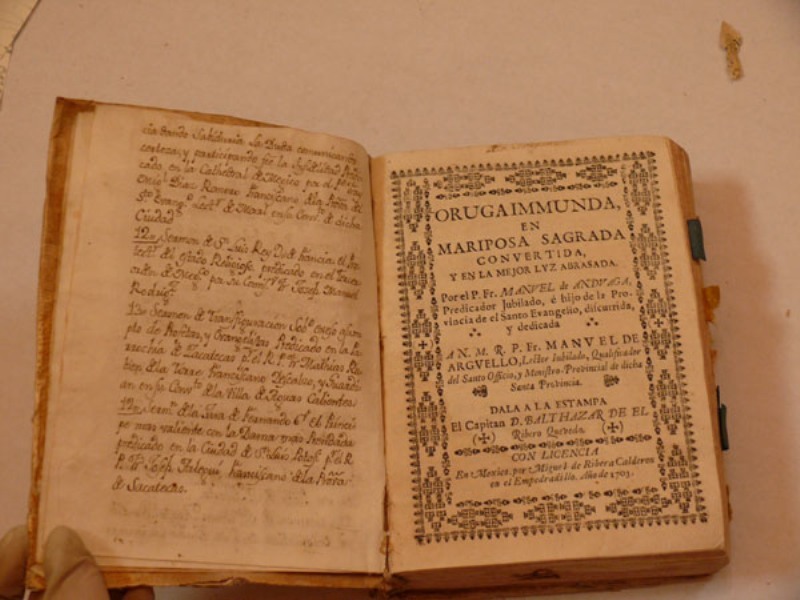 cia donde Sabiduria la Dicta comunicando
certeza, y participando fee la
cado, en la Cathedral de Mexico por el
Diaz Romero franciscano de la
Sto. Evangº Lectr. de Moral en su Convto. de dicha
Ciudad
12. Sermon de Sn. Luis Rey De francia el
del estado Religioso predicado en el
de Mexco por su Comy. Fr. Joseph Manuel
Rodrigz.
13. Sermon de Transfiguracion
plo de Profetas, y Evangelistas Predicado en la Pa-
rrochia de Zacatecas pr. el R. P. Fr. Mathias
de la Torre franciscano Descalzo, y Guardi-
an en su Convto. de la Villa de Aguas Calientes.
14. Serm. de la Jura de Fernando 6º el Princi-
pe mas valiente con la Dama mas Honrada
predicado en la Ciudad de Sn. Luis Potosi pr. el R.
P. Fr. Joseph franciscano de la Prova.
de Sacatecas.
ORUGA IMMUNDA,
EN
MARIPOSA SAGRADA
CONVERTIDA,
Y EN LA MEJOR LVZ ABRASADA.
Por el P. Fr. MANVEL de ANDVAGA,
Predicador Jubilado, è hijo de la Pro-
vincia de el Santo Evangelio, discurrida,
y dedicada
A N. M. R. P. Fr. MANVEL DE
ARGVELLO, Lector Iubilado, Qualificador
del Santo Officio, y Ministro Provincial de dicha
Santa Provincia.
DALA A LA ESTAMPA
El Capitan D. BALTHAZAR DE EL
Ribero Quevedo.
CON LICENCIA
En Mexico, por Miguel de Ribera Calderon
en el Empedradillo. Año de 1703.